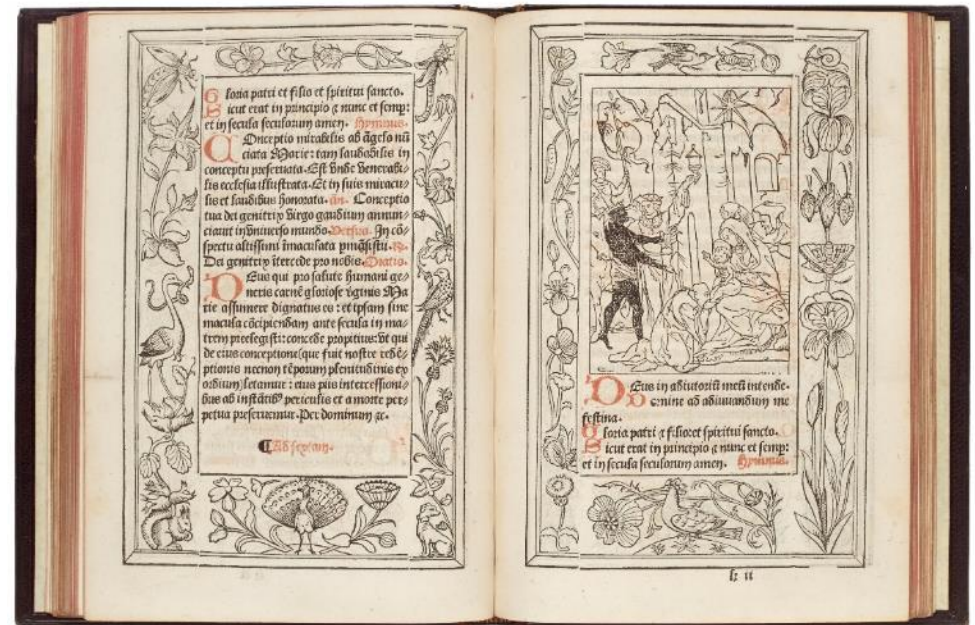 Gloria patri et filio et spiritui sancto.
Sicut erat in principio ⁊ nunc et semp:
et in secula seculorum amen. Hymnus.
COnceptio mirabilis ab āgelo nū
ciata Marie: tam laudabilis in
conceptu preseruata. Est vnde venerabi⸗
lis ecclesia illustrata. Et in suis miracu⸗
lis et laudibus honorata. añ. Conceptio
tua dei genitrix virgo gaudium annun⸗
ciauit in vniuerso mundo. Versus. In cō⸗
spectu altissimi īmaculata pmāsisti. R.
Dei genitrix ītercede pro nobis. Oratio.
DEus qui pro salute humani ge⸗
neris carnē gloriose vginis Ma
rie assumere dignatus es: et ipsam sine
macula cōcipiendam ante secula in ma⸗
trem preelegisti: concede propitius: vt qui
de eius conceptione (que fuit nostre redē⸗
ptionis necnon tēporum plenitudinis ex
ordium) letamur: eius piis intercessioni⸗
bus ab instātib⁹ periculis et a morte per⸗
petua preseruemur. Per dominum ⁊c.
¶Ad sextam.
DEus in adiutoriū meū intende.
Domine ad adiuuandum me
festina.
Gloria patri ⁊ filio: et spiritui sancto.
Sicut erat in principio ⁊ nunc et semp:
et in secula seculorum amen. Hymnus.